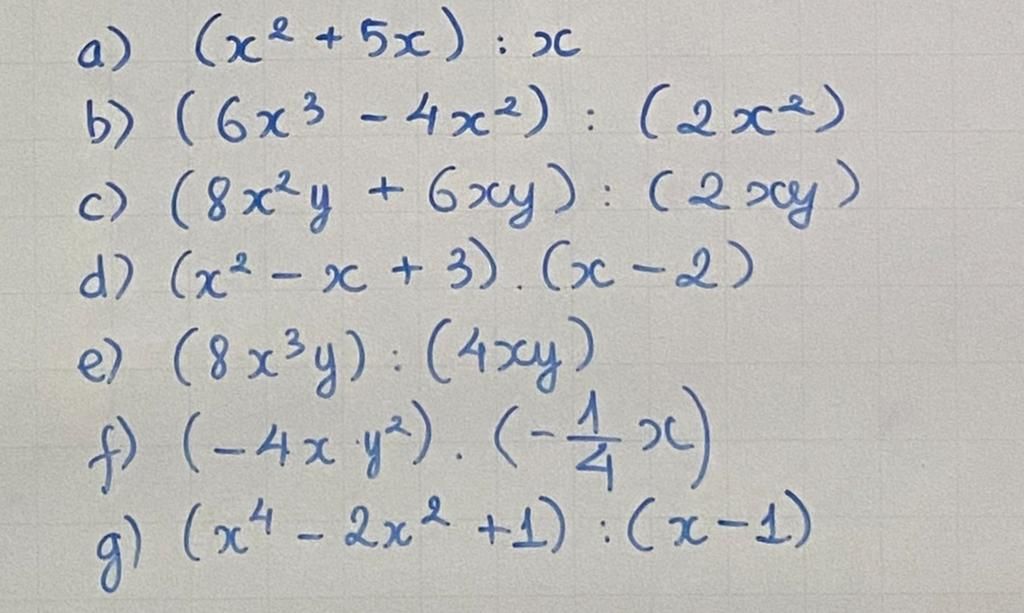 a) (x² + 5x) : x
b) (6x³ - 4x²) : (2x²)
c) (8x²y + 6xy) : (2xy)
d) (x² - x + 3) . (x - 2)
e) (8x³y) : (4xy)
f) (-4x y²) . (-1/4 x)
g) (x⁴ - 2x² + 1) : (x - 1)